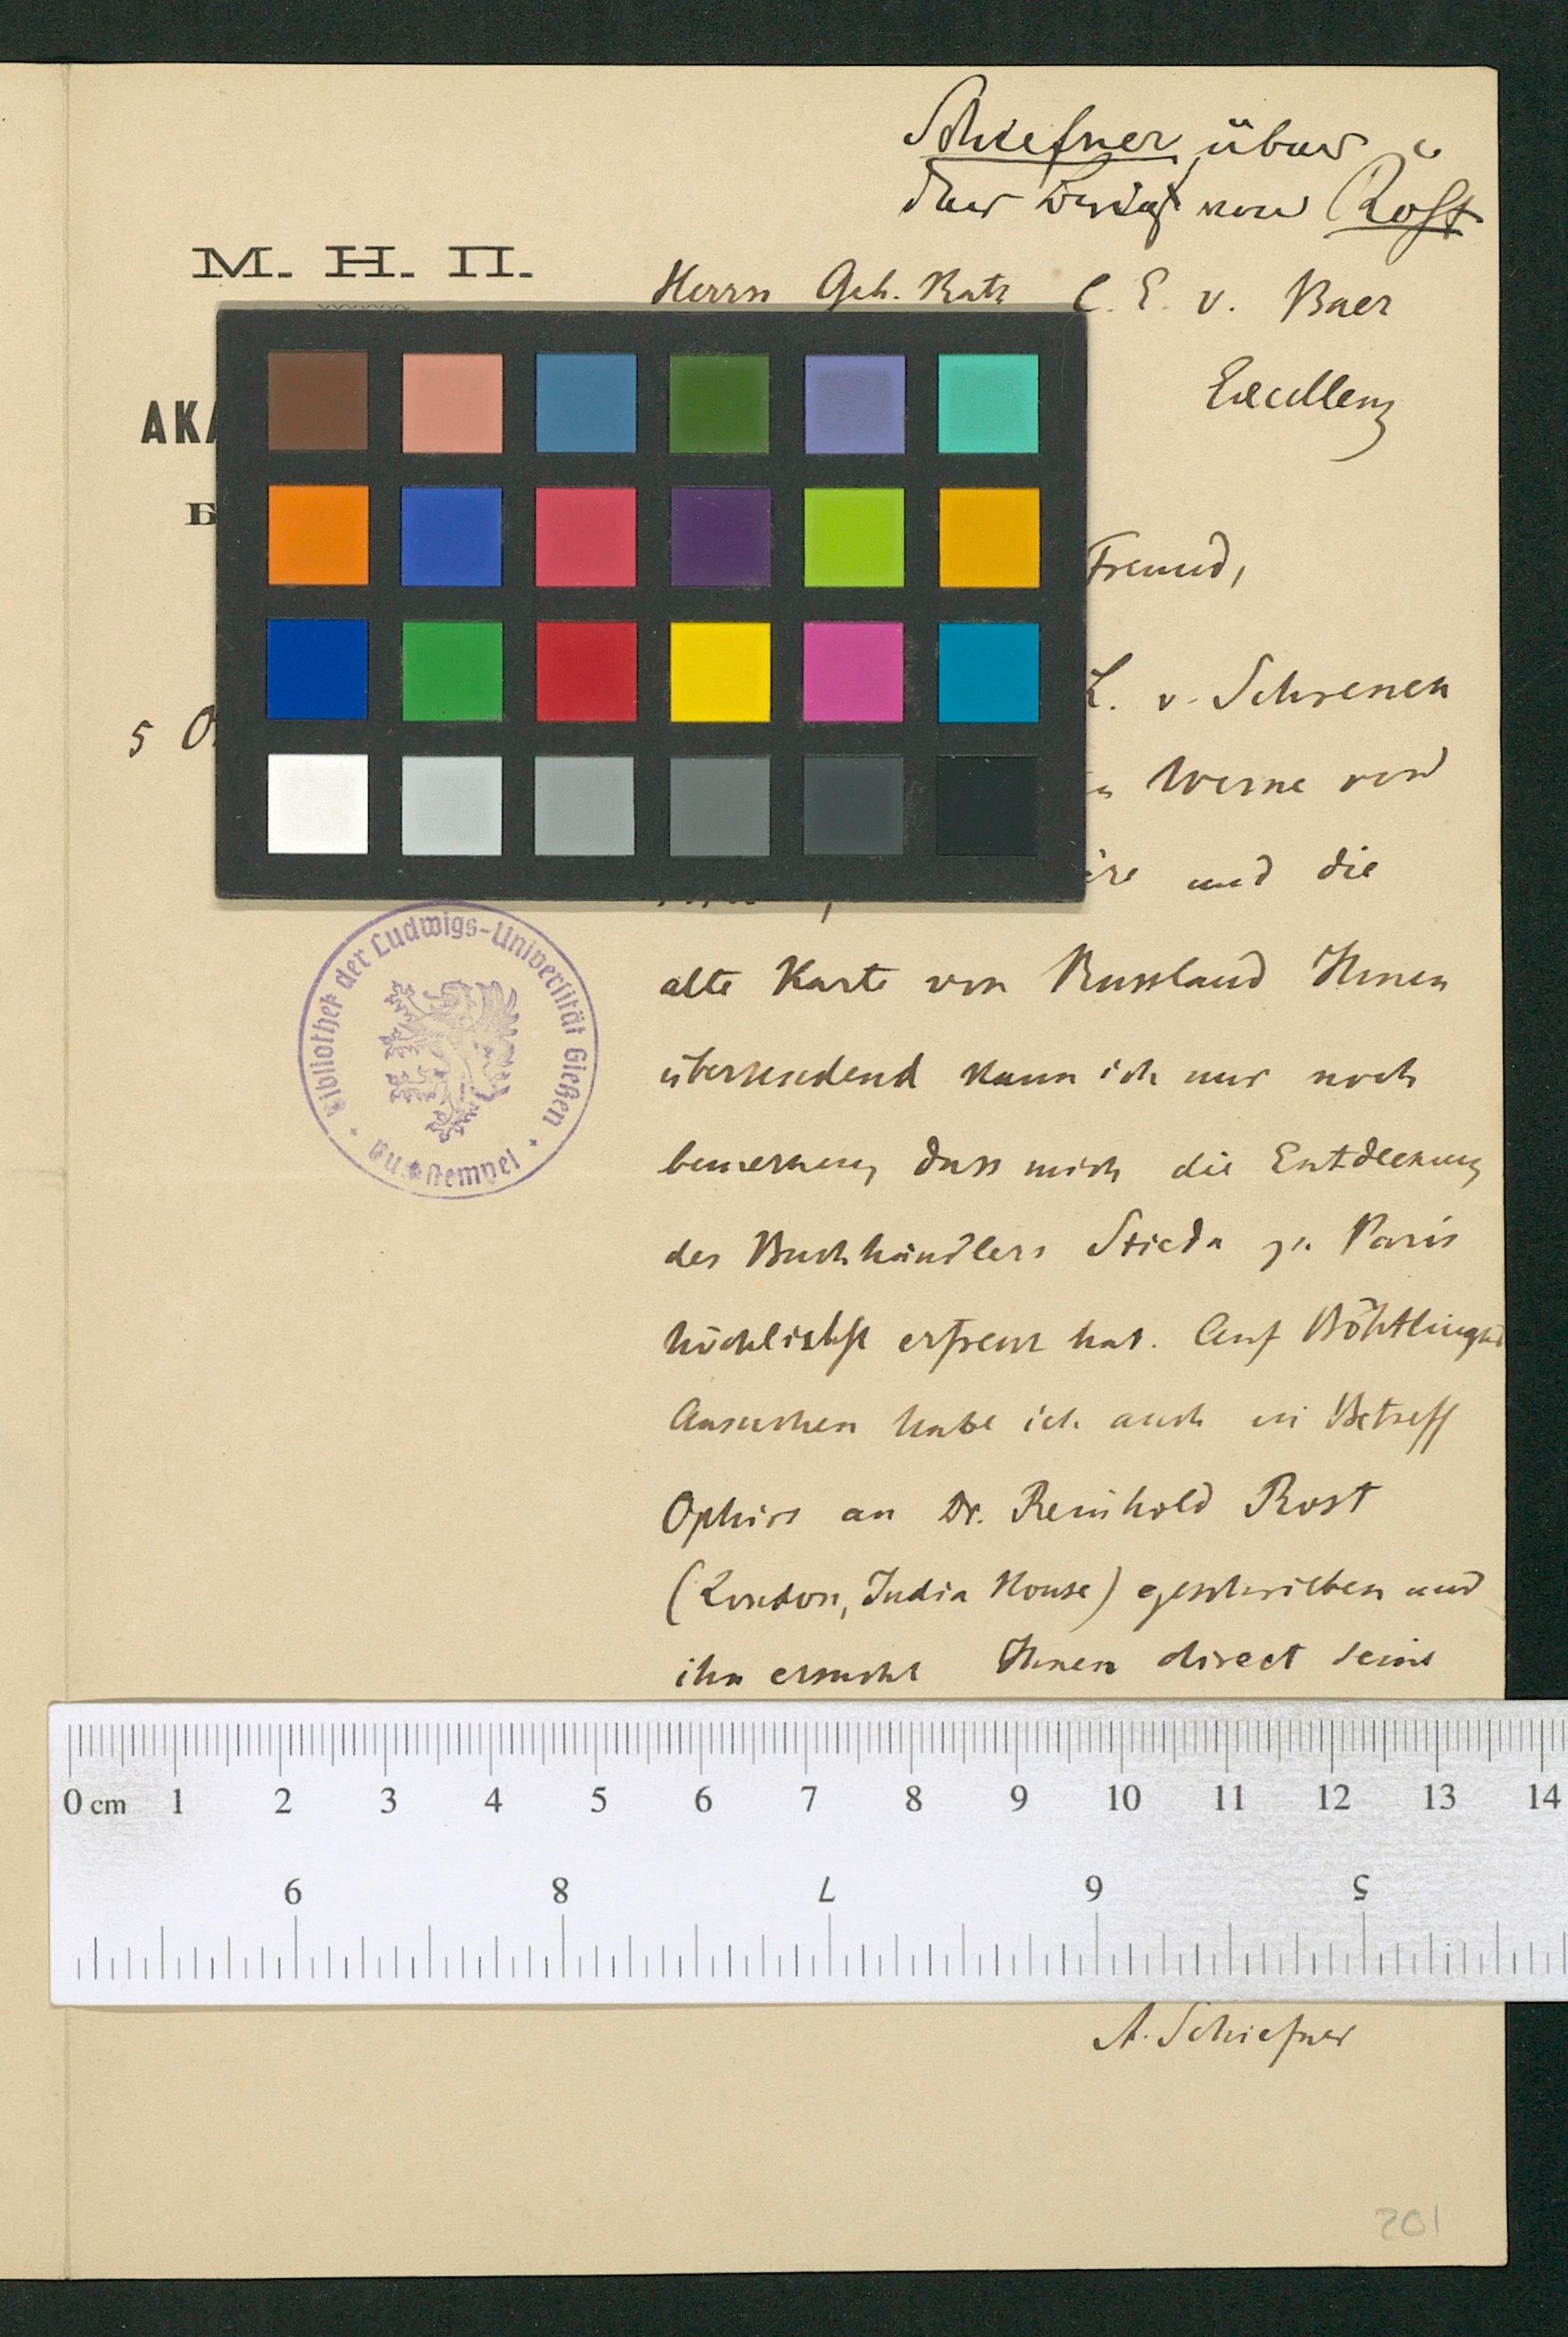 Schiefner über
den Brief von Rost
М. Н. П.
Herrn Geh. Rath C. E. v. Baer
Excellenz
АКА
Б
Freund,
5 O
L. v. Schrenck
Werke von
und die
alte Karte von Russland Ihnen
übersendend kann ich nur noch
bemerken, dass mich die Entdeckung
des Buchhändlers Stieda zu Paris
höchlichst erfreut hat. Auf Böhtlingks
Ansuchen habe ich auch in Betreff
Ophirs an Dr. Reinhold Rost
(London, India House) geschrieben und
ihn ersucht Ihnen direct seine
A. Schiefner
Bibliothek der Ludwigs-Universität Gießen
0 cm 1 2 3 4 5 6 7 8 9 10 11 12 13 14
9 8 7 6 5
201